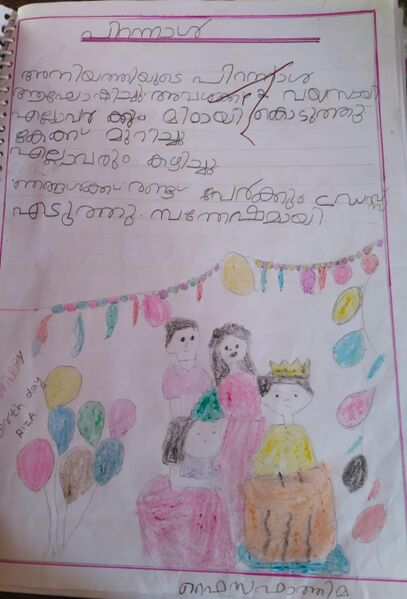 പിറന്നാൾ
അനിയത്തിയുടെ പിറന്നാൾ
ആഘോഷിച്ചു. അവൾക്ക് 2 വയസായി
എല്ലാവർക്കും മിഠായി കൊടുത്തു
കേക്ക് മുറിച്ചു
എല്ലാവരും കഴിച്ചു.
ഞങ്ങൾക്ക് രണ്ട് പേർക്കും ഡ്രസ്സ്
എടുത്തു. സന്തോഷമായി.
HAPPY
Birth day
RIZA
ഫൈസഫാത്തിമ